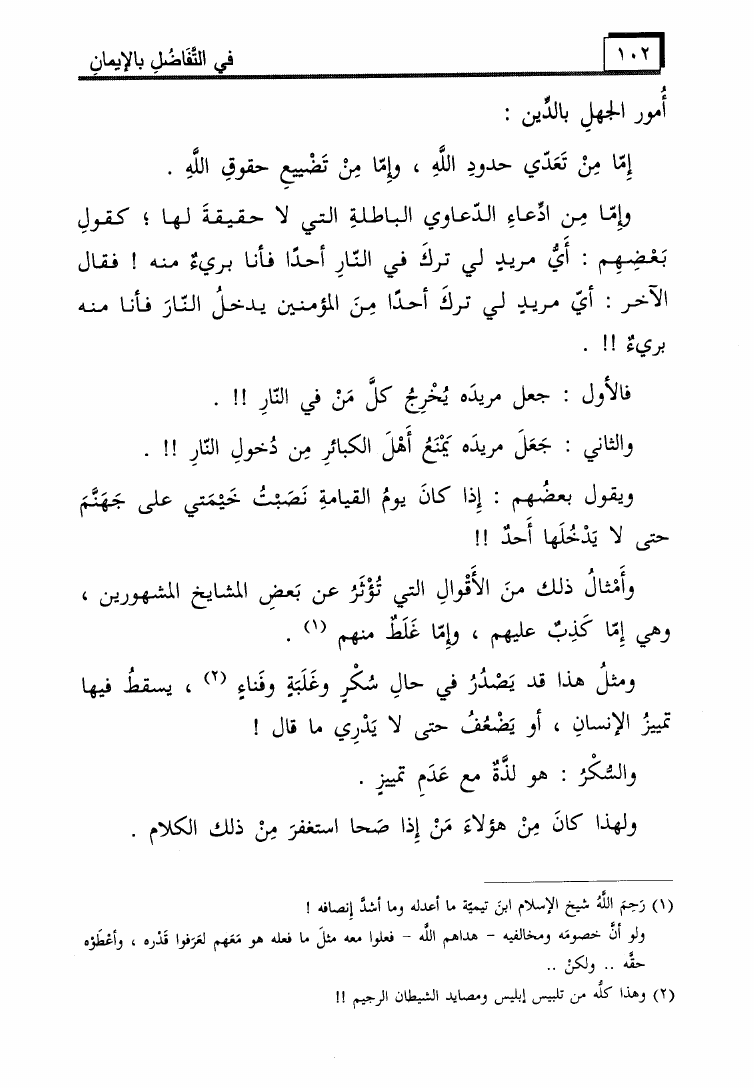 ١٠٢
في التَّفَاضُلِ بالإيمانِ
أُمور الجهلِ بالدِّين :
إمّا مِنْ تَعَدّي حدودِ اللَّهِ ، وإِمّا مِنْ تَضْييعِ حقوقِ اللَّهِ .
وإمّا مِن ادِّعاءِ الدّعاوي الباطلةِ التي لا حقيقةَ لها ؛ كقولِ
بَعْضِهِم : أَيُّ مريدٍ لي تركَ في النّارِ أحدًا فأنا بريءٌ منه ! فقال
الآخر : أيّ مريدٍ لي تركَ أحدًا مِنَ المؤمنين يدخلُ النّارَ فأنا منه
بريءٌ !! .
فالأول : جعل مريدَه يُخْرِجُ كلَّ مَنْ في النّارِ !! .
والثاني : جَعَلَ مريدَه يَمْنَعُ أَهْلَ الكبائرِ مِن دُخولِ النّارِ !! .
ويقول بعضُهم : إِذا كانَ يومُ القيامةِ نَصَبْتُ خَيْمَتي على جَهَنَّمَ
حتى لا يَدْخُلَها أَحدٌ !!
وأَمْثالُ ذلك منَ الأَقْوالِ التي تُؤْثَرُ عن بَعضِ المشايخ المشهورين ،
وهي إِمّا كَذِبٌ عليهم ، وإمّا غَلَطٌ منهم (١) .
ومثلُ هذا قد يَصْدُرُ في حالِ سُكْرٍ وغَلَبَةٍ وفَناءٍ (٢) ، يسقطُ فيها
تمييزُ الإنسانِ ، أو يَضْعُفُ حتى لا يَدْرِي ما قال !
والسُّكْرُ : هو لذَّةٌ مع عَدَمِ تمييزٍ .
ولهذا كانَ مِنْ هؤلاءَ مَنْ إِذا صَحا استغفرَ مِنْ ذلك الكلام .
(١) رَحِمَ اللَّهُ شيخ الإسلام ابنَ تيميّة ما أعدله وما أشدَّ إنصافه !
ولو أنَّ خصومَه ومخالفيه – هداهم اللَّه – فعلوا معه مثلَ ما فعله هو مَعَهم لعَرَفوا قَدْره ، وأعْطَوْه
حقَّه .. ولكنْ ..
(٢) وهذا كلُّه من تلبيس إبليس ومصايد الشيطان الرجيم !!